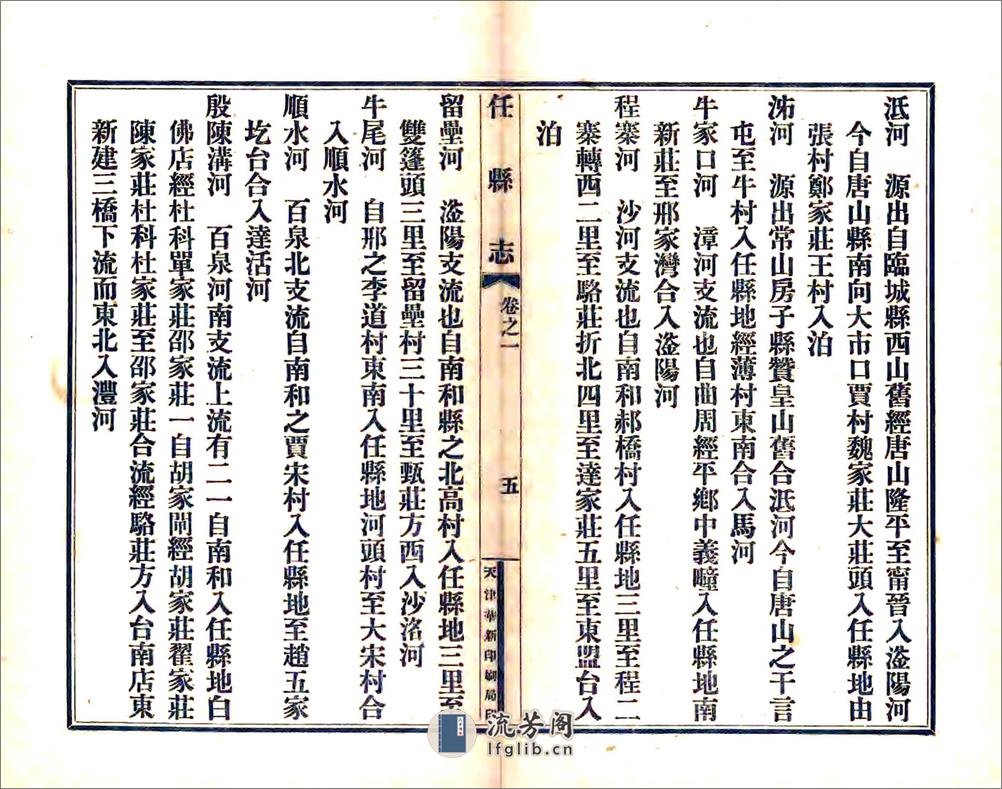 泜河　源出自臨城縣西山舊經唐山隆平至甯晉入滏陽河
今自唐山縣南向大市口賈村魏家莊大莊頭入任縣地由
張村鄭家莊王村入泊
沛河　源出常山房子縣贊皇山舊合泜河今自唐山之干言
屯至牛村入任縣地經薄村東南合入馬河
牛家口河　漳河支流也自曲周經平鄉中義疃入任縣地南
新莊至邢家灣合入滏陽河
程寨河　沙河支流也自南和郝橋村入任縣地三里至程二
寨轉西二里至駱莊折北四里至達家莊五里至東盟台入
泊
任縣志
卷之一
五
天津華新印刷局印
留壘河　滏陽支流也自南和縣之北高村入任縣地三里至
雙篷頭三里至留壘村三十里至甄莊方西入沙洺河
牛尾河　自邢之李道村東南入任縣地河頭村至大宋村合
入順水河
順水河　百泉北支流自南和之賈宋村入任縣地至趙五家
圪台合入達活河
殷陳溝河　百泉河南支流上流有二一自南和入任縣地白
佛店經杜科單家莊邵家莊一自胡家閘經胡家莊翟家莊
陳家莊杜科杜家莊至邵家莊合流經駱莊方入台南店東
新建三橋下流而東北入澧河
流芳阁
lfglib.cn